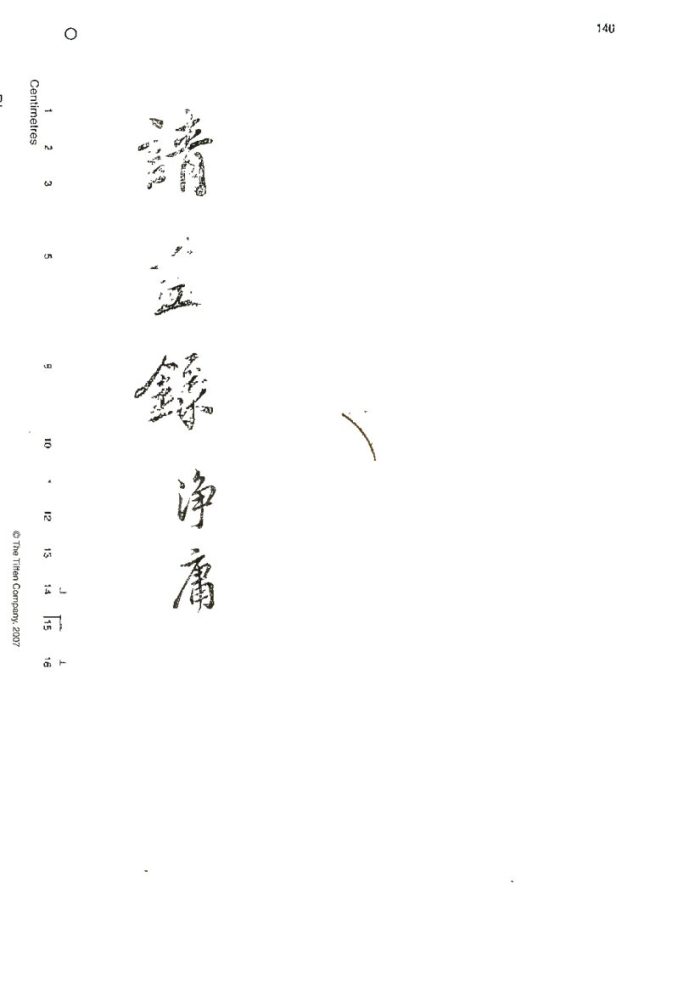 請益錄 浄庸
Centimetres
1 2 3 5 10 12 13 14 15 16
© The Tiffen Company, 2007